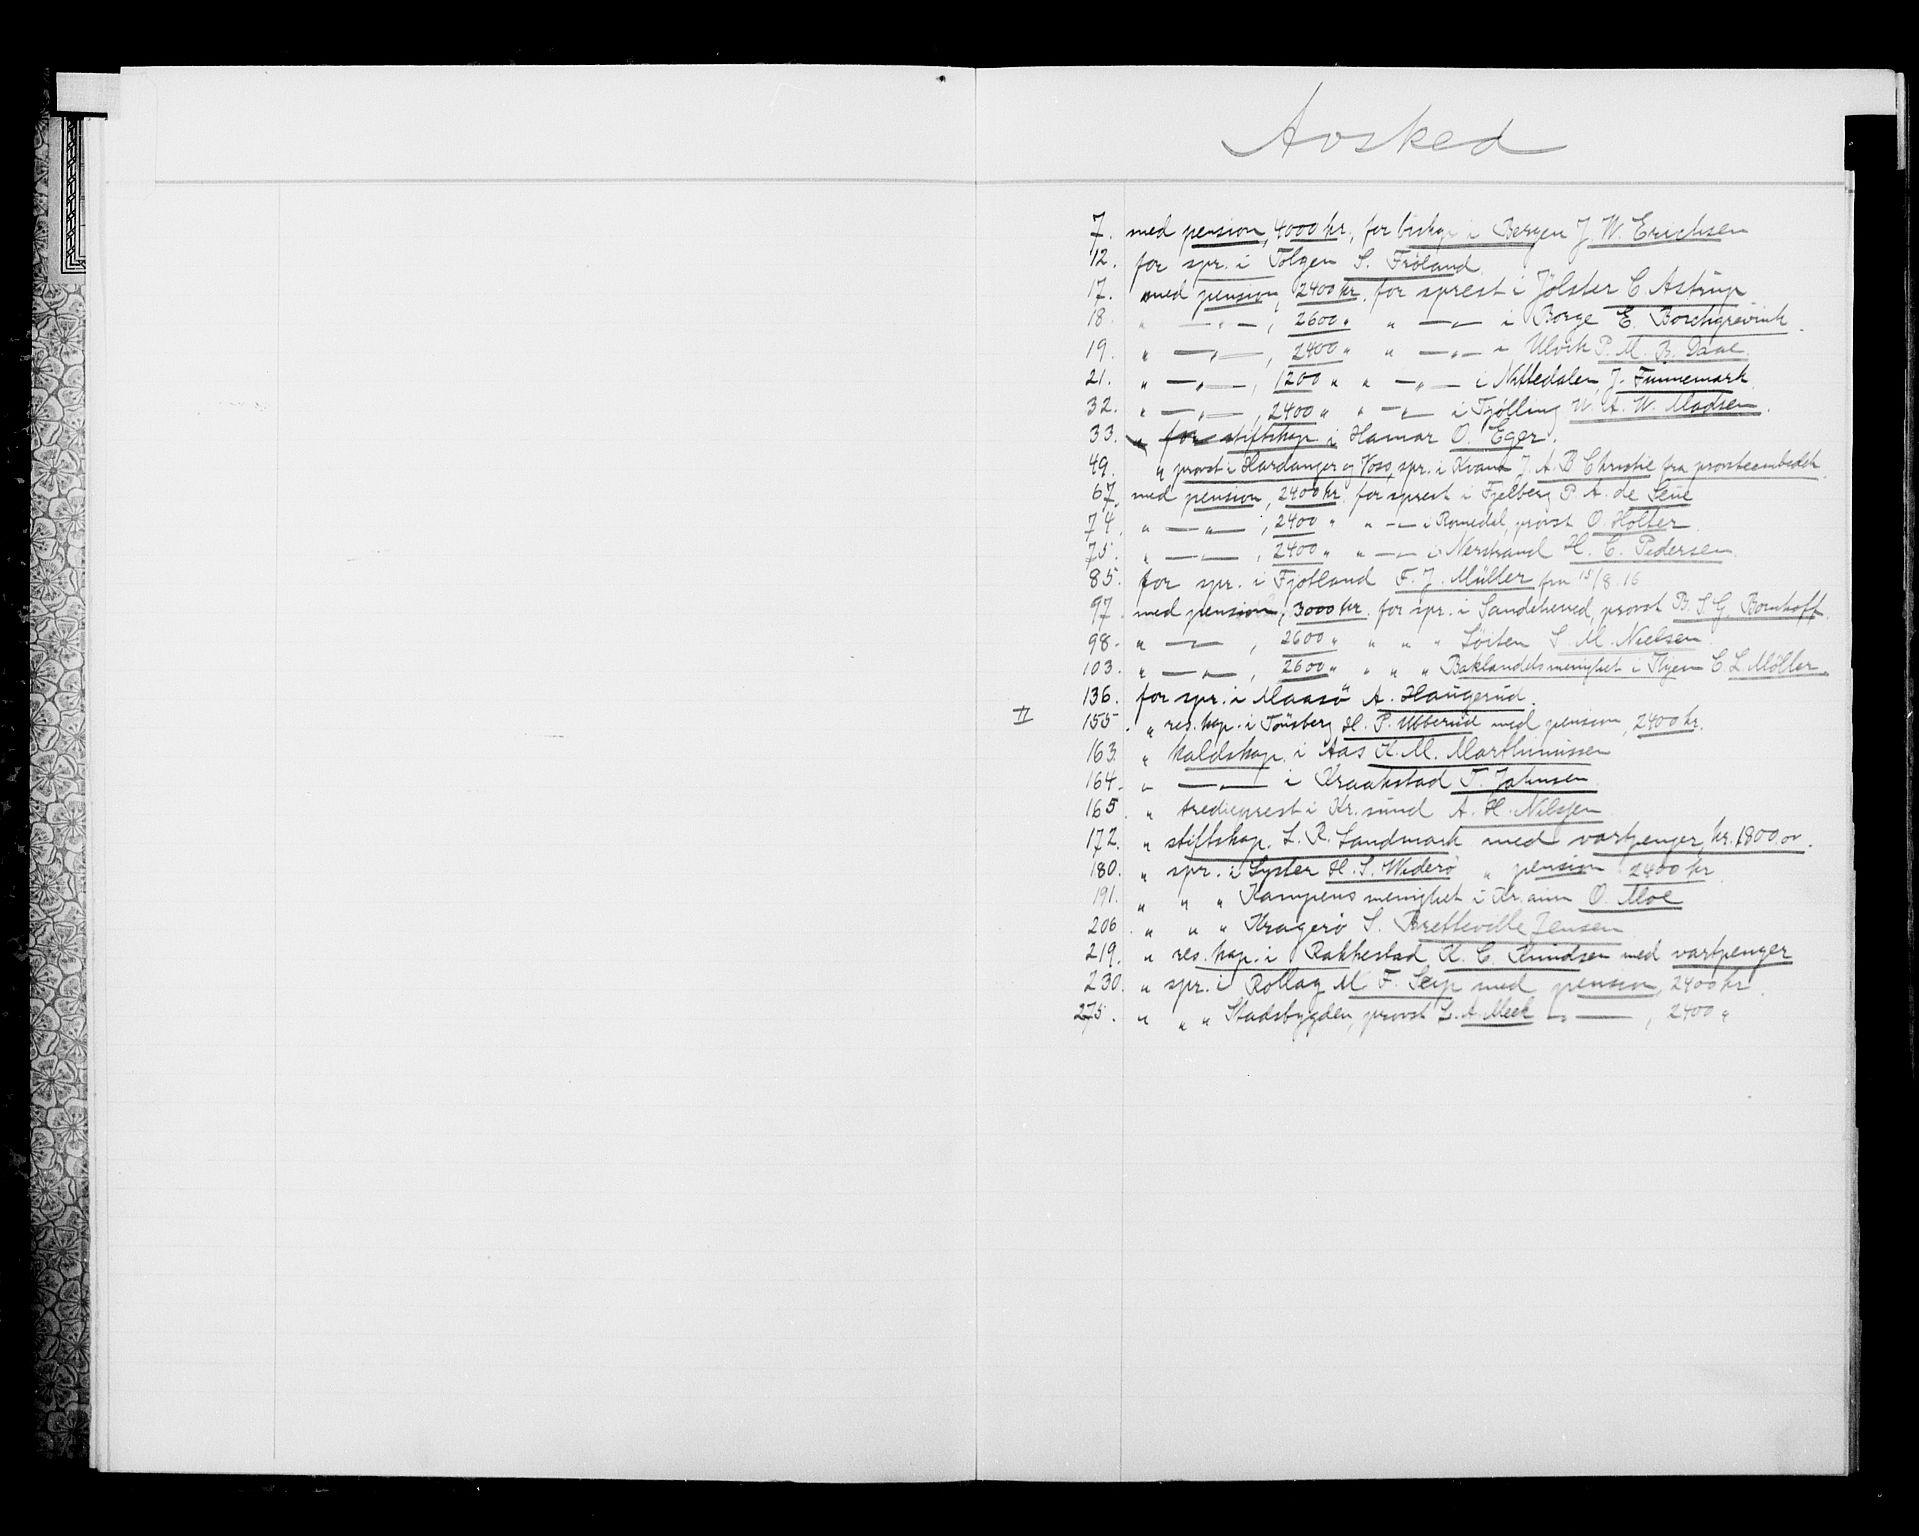 Avsked
7. med pension, 4000 kr., for biskop i Bergen J. W. Erichsen
12. for spr. i Tolgen S. Fröland.
17. med pension, 2400 kr. for sprest i Jölster C. Astrup
18. " —"—, 2600 " " —"— i Borge E. Borchgrevink.
19. " —"—, 2400 " " —"— i Ulvik P. M. B. Daae.
21. " —"—, 1200 " " —"— i Nittedalen J. Finnemark.
32. " —"—, 2400 " " —"— i Tjölling W. A. W. Madsen.
33. " for stiftskap i Hamar O. Eger.
49. " provst i Hardanger og Voss, spr. i Kvam J. A. B. Christie fra provsteembedet.
67. med pension, 2400 kr. for sprest i Fjelberg P. A. de Seue
74. " —"—, 2400 " " —"— i Romedal, provst O. Holter.
75. " —"—, 2400 " " —"— i Nerstrand H. C. Pedersen.
85. for spr. i Fjotland F. J. Müller fra 15/8.16
97. med pension, 3000 kr. for spr. i Sandeherred, provst B. S. G. Bornhoff.
98. " —"—, 2600 " " " " Lörten S. M. Nielsen.
103. " —"—, 2600 " " " " Baklandets menighet i Thjem C. L. Möller.
136. for spr. i Maasö A. Haugerud.
II 155. " res. kap. i Tönsberg H. P. Ubberud med pension, 2400 kr.
163. " kaldskap. i Aas K. M. Marthinussen
164. " —"— i Kraakstad T. Johnsen.
165. " tredieprest i Kr.sund A. H. Nilssen.
172. " stiftskap. L. R. Landmark med vartpenger, kr. 1800,00.
180. " spr. i Lyster H. S. Widerö " pension 2400 kr.
191. " " " Kampens menighet i Kr.ania O. Moe
206. " " " Kragerö S. Bretteville Jensen
219. " res. kap. i Rakkestad K. C. Knudsen med vartpenger
230. " spr. i Rollag M. F. Seip med pension, 2400 kr.
275. " " " Stadsbygden, provst L. A. Meek —"—, 2400 "